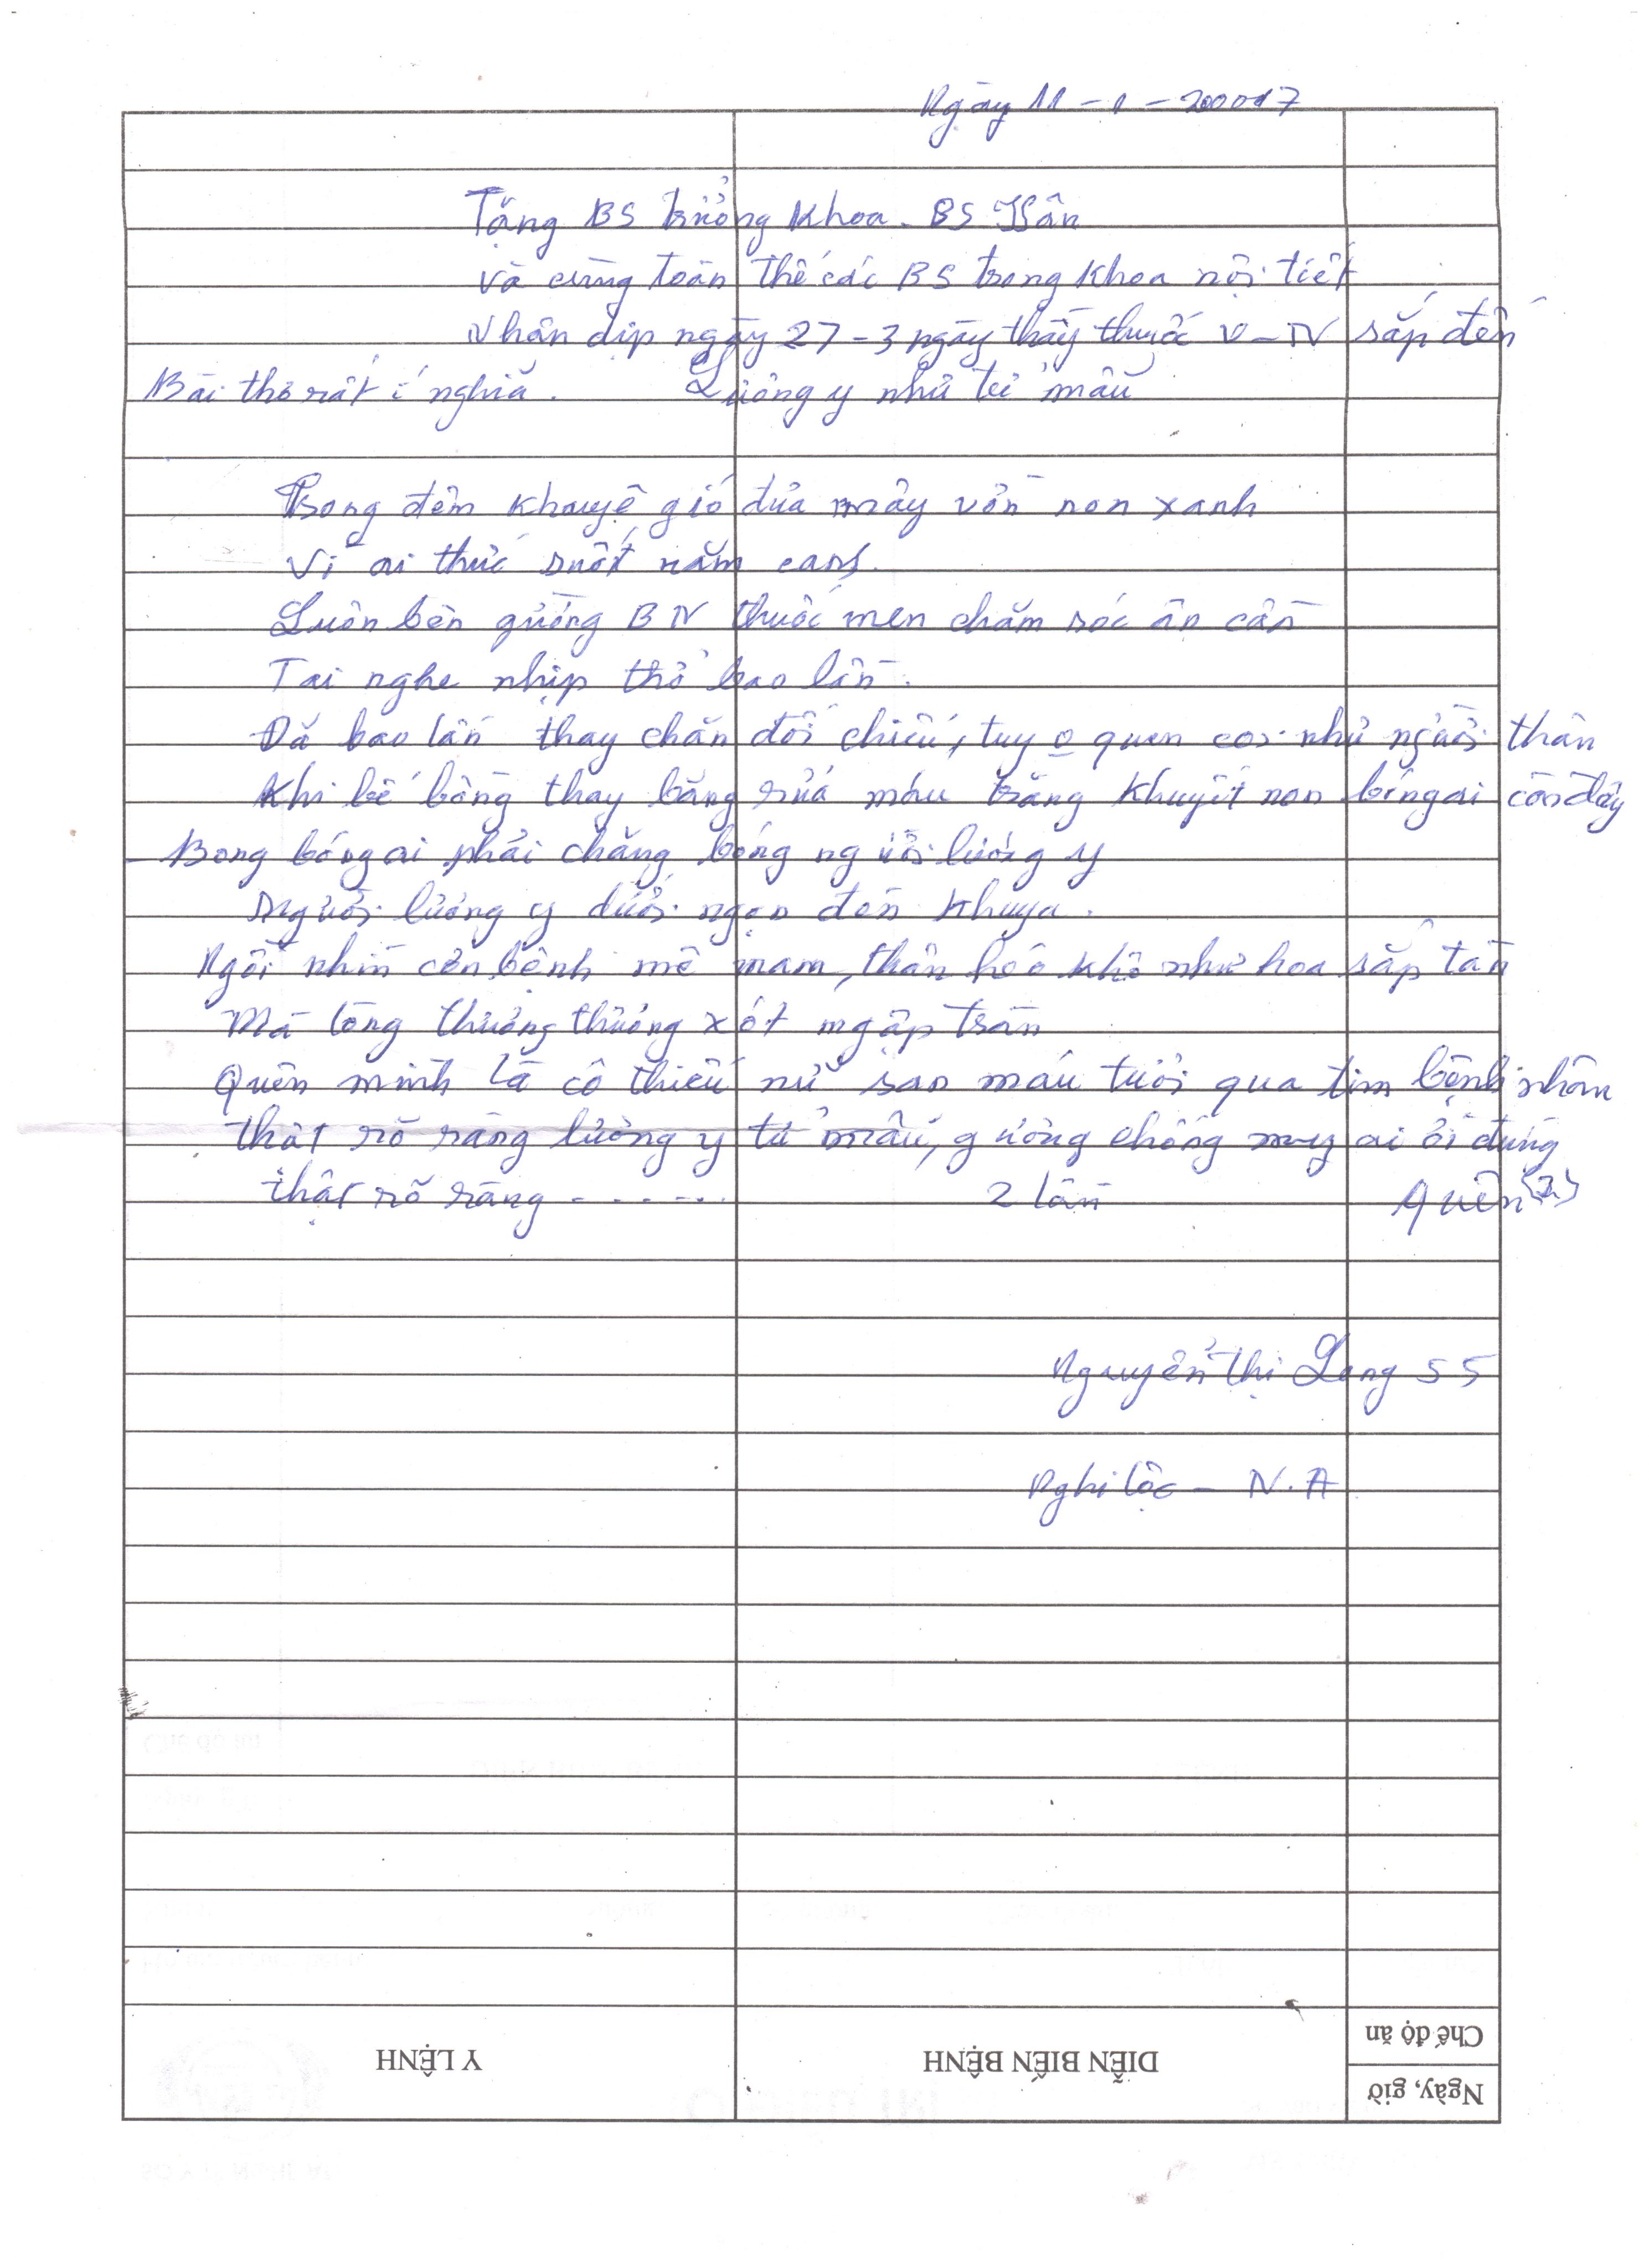 Ngày 11 - 1 - 200017
Tặng BS trưởng khoa. BS Hân
và cùng toàn thể các BS trong khoa nội tiết
Nhân dịp ngày 27 - 3 ngày thầy thuốc V - N sắp đến
Bài thơ rất í nghĩa. Lương y như từ mẫu
Trong đêm khuyê gió đưa mây vờn non xanh
Vì ai thức suốt năm canh.
Luôn bên giường BN thuốc men chăm sóc ân cần
Tai nghe nhịp thở bao lần.
Đã bao lần thay chăn đổi chiếu, tuy o quen coi như người thân
Khi bế bồng thay băng rửa máu trăng khuyết non bóng ai còn đây
- Bong bóng ai phải chăng bóng người lương y
Người lương y dưới ngọn đèn khuya.
Ngồi nhìn cơn bệnh mê mam, thân héo khô như hoa sắp tàn
Mà lòng thương thương xót ngập tràn
Quên mình là cô thiếu nữ san máu tươi qua tim bệnh nhân
thật rõ ràng lương y từ mẫu, gương chông ai ơi đừng
thật rõ ràng - - - - - - 2 lần quên (2)
Nguyễn Thị Long 55
Nghi Lộc - N.A
Y LỆNH
DIỄN BIẾN BỆNH
Chế độ ăn
Ngày, giờ